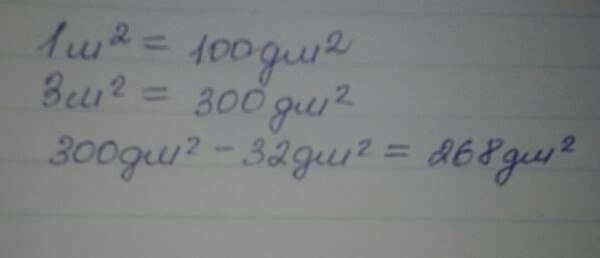 1м² = 100дм²
3м² = 300дм²
300дм² - 32дм² = 268дм²